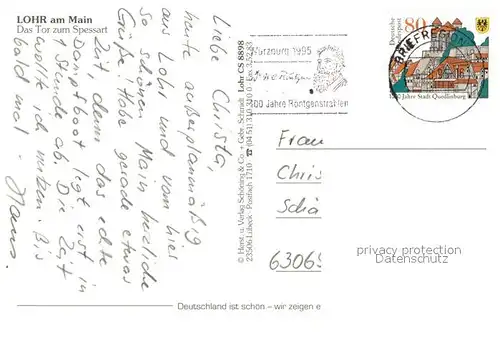 LOHR am Main
Das Tor zum Spessart
Liebe Christa,
heute außerplanmäßig
aus Lohr und vom hier
so schönen Main herzliche
Grüße! Habe gerade etwas
Zeit, denn das echte
Dampfboot legt erst in
1 Stunde ab. Die Zeit
wollte ich nutzen. Bis
bald mal!
Hans.
© Herst. u. Verlag Schöning & Co. + Gebr. Schmidt
23506 Lübeck · Postfach 1710 ☎ (04 51) 3 10 31 0
Lohr CS 8898
Würzburg 1995
100 Jahre Röntgenstrahlen
BRIEFREGION
Deutsche
Bundespost
80
1000 Jahre Stadt Quedlinburg
Frau
Chris
Schä
6306
privacy protection
Datenschutz
Deutschland ist schön – wir zeigen e